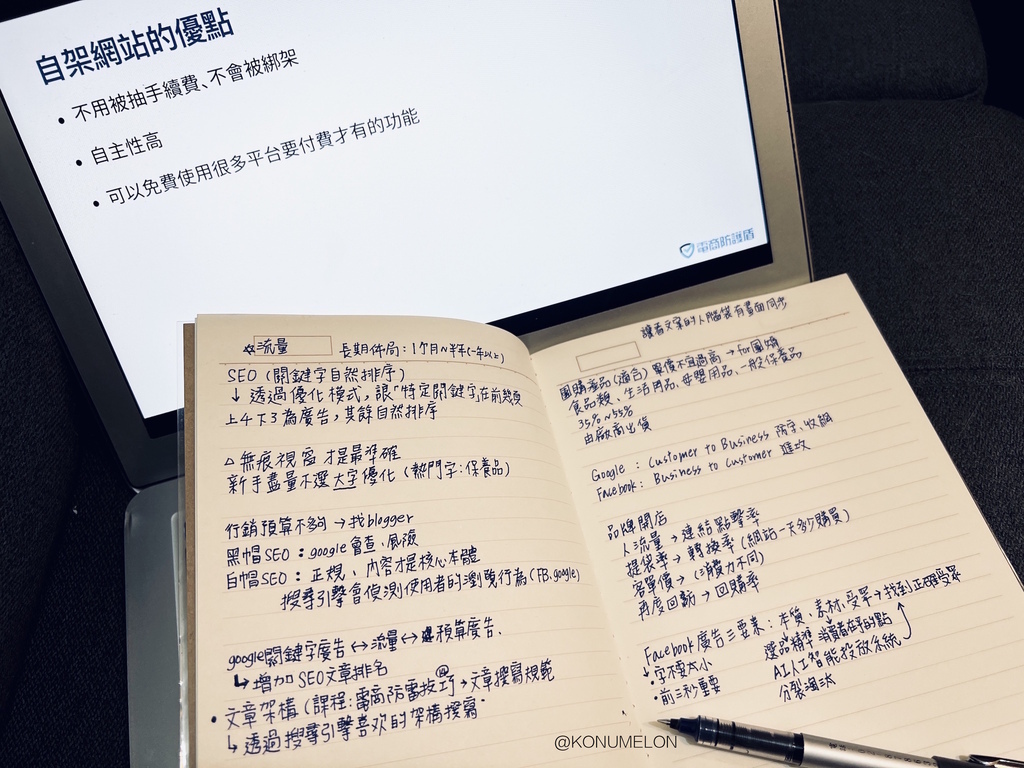 自架網站的優點
• 不用被抽手續費、不會被綁架
• 自主性高
• 可以免費使用很多平台要付費才有的功能
電商防護盾
☆流量 長期佈局:1個月~半年(一年以上)
SEO(關鍵字自然排序)
↓ 透過優化模式,讓「特定關鍵字」在前幾頁
上4下3為廣告,其餘自然排序
△無痕視窗才是最準確
新手盡量不選大字優化(熱門字:保養品)
行銷預算不夠→找blogger
黑帽SEO:google會查、風險
白帽SEO:正規、內容才是核心本體
搜尋引擎會偵測使用者的瀏覽行為(FB、google)
google關鍵字廣告↔流量↔預算廣告、
↳增加SEO文章排名
• 文章架構(課程:電商防雷技巧→文章撰寫規範
↳透過搜尋引擎喜歡的架構撰寫
讓看文案的人腦袋有畫面同步
團購產品(適合)單價不宜過高→for團媽
食品類、生活用品、母嬰用品、一般保養品
35%~55%
由廠商出貨
Google:Customer to Business 防守、收網
Facebook:Business to Customer 進攻
品牌開店
人流量→連結點擊率
提袋率→轉換率(網站一天多少購買)
客單價→(消費力不同)
再度回訪→回購率
Facebook廣告三要素:本質、素材、受眾→找到正確受眾
↓•字不要太小 選品精準 消費者在乎的點
•前三秒重要 AI人工智能投放系統
分裂淘汰
@KONUMELON